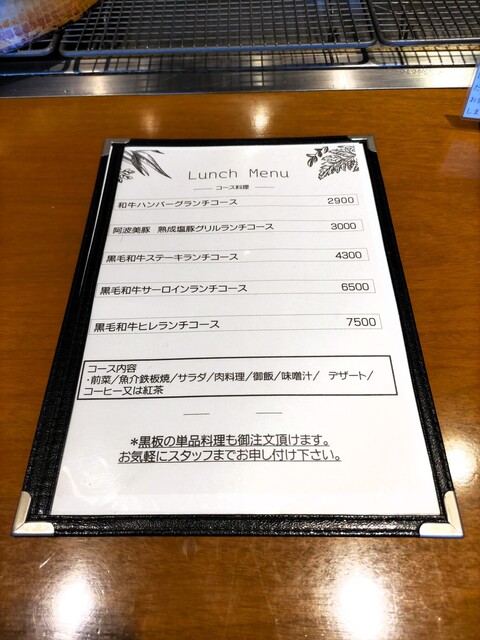 Lunch Menu
コース料理
和牛ハンバーグランチコース 2900
阿波美豚 熟成塩豚グリルランチコース 3000
黒毛和牛ステーキランチコース 4300
黒毛和牛サーロインランチコース 6500
黒毛和牛ヒレランチコース 7500
コース内容
・前菜/魚介鉄板焼/サラダ/肉料理/御飯/味噌汁/ デザート/
コーヒー又は紅茶
*黒板の単品料理も御注文頂けます。
お気軽にスタッフまでお申し付け下さい。